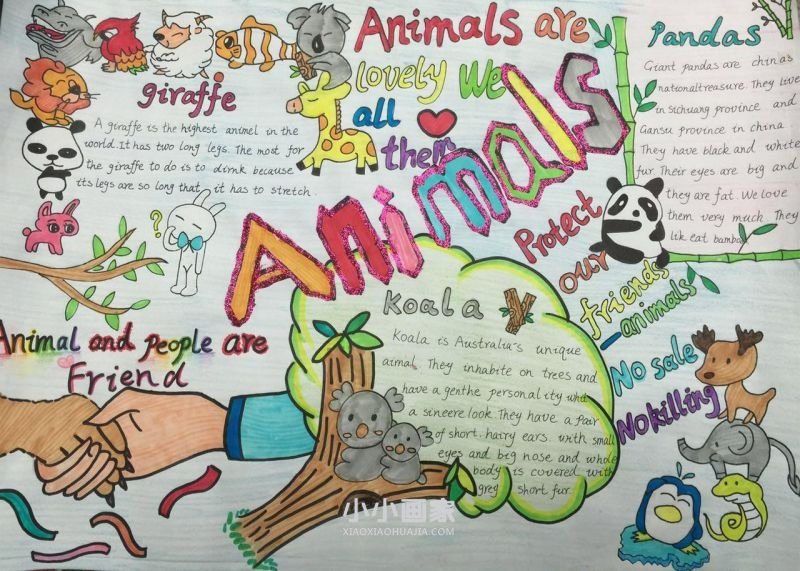 Animals are
lovely We
all
them
Animals
giraffe
A giraffe is the highest animel in the
world. It has two long legs. The most for
the giraffe to do is to dirnk because
its legs are so long that it has to stretch.
Pandas
Giant pandas are chinas
nationaltreasure. They live
in sichuang province and
Gansu province in china
They have black and white
fur. Their eyes are big and
they are fat. We love
them very much They
lik eat bamboo
Protect
our
friends
animals
No sale
No killing
?
Animal and people are
Friend
Koala
Koala is Australia's unique
aimal. They inhabite on trees and
have a genthe personality
a sineere look They have a pair
of short hairy ears. with small
eyes and big nose and whole
body is covered with
grey short fur.
小小画家
XIAOXIAOHUAJIA.COM